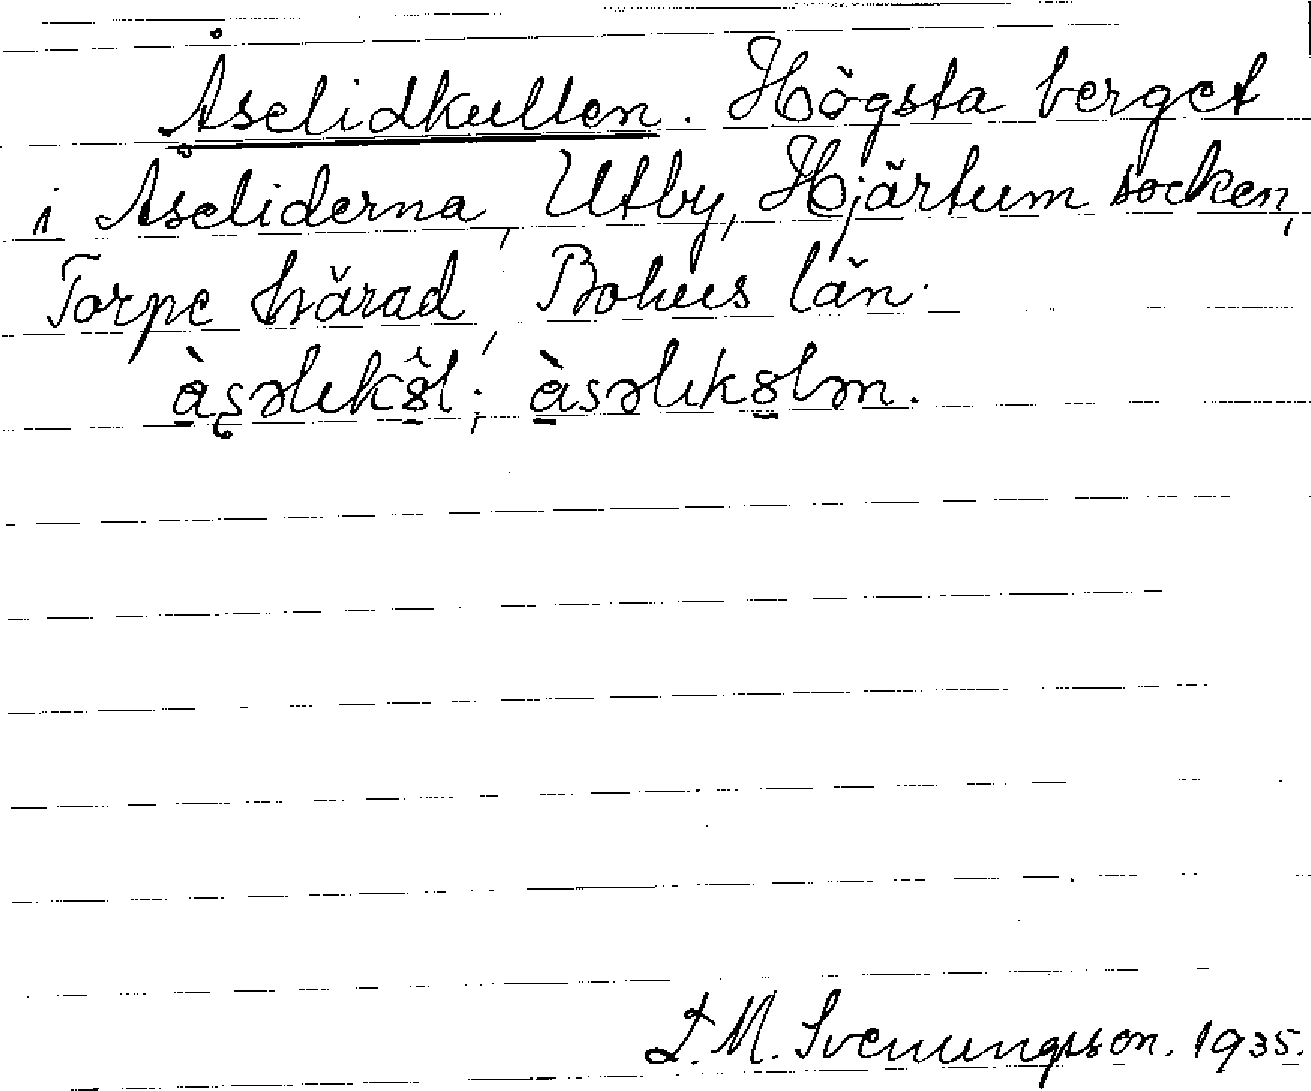 Åselidkullen. Högsta berget
i Åseliderna, Utby, Hjärtum socken,
Torpe härad, Bohus län.
L. M. Svenungsson. 1935.